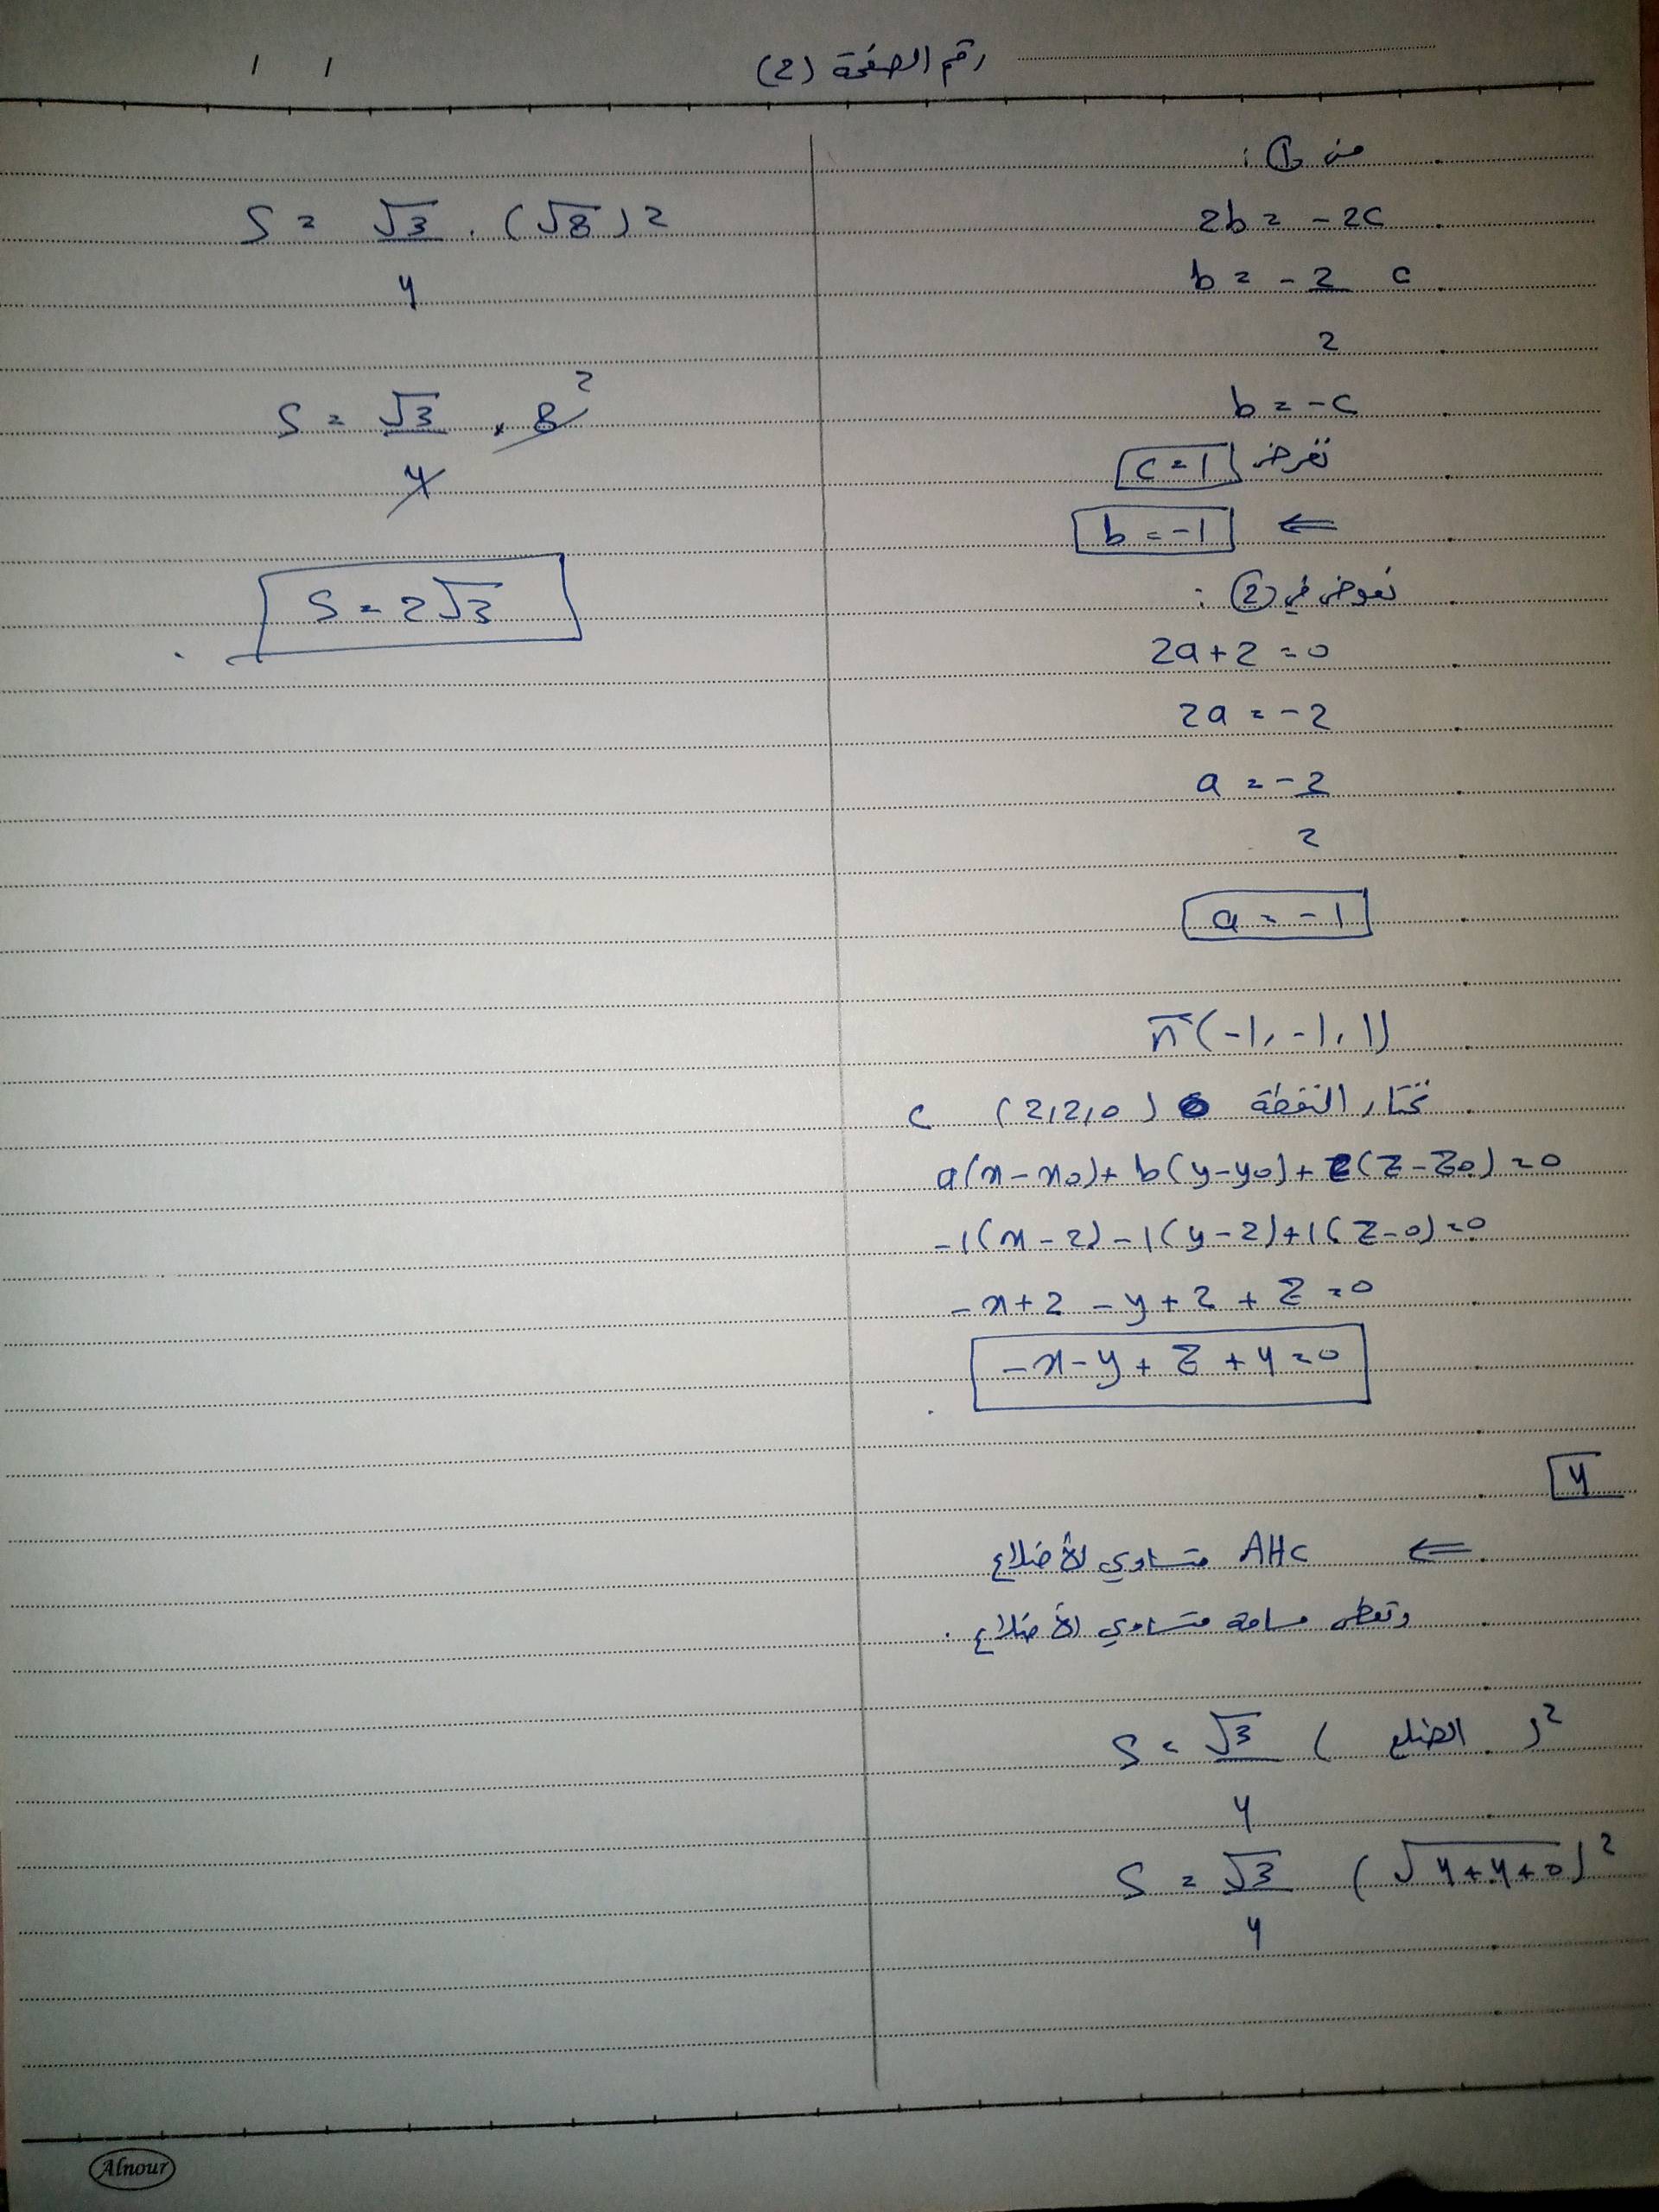 رقم الصفحة (2)
/ /
من ① :
2b = -2c
b = -2/2 c
b = -c
نفرض c = 1
⇐ b = -1
نعوض في ② :
2a + 2 = 0
2a = -2
a = -2/2
a = -1
n⃗ (-1, -1, 1)
نختار النقطة c (2, 2, 0)
a(x - x0) + b(y - y0) + c(z - z0) = 0
-1(x - 2) - 1(y - 2) + 1(z - 0) = 0
-x + 2 - y + 2 + z = 0
-x - y + z + 4 = 0
4
⇐ AHC متساوي الأضلاع
وتعطى مساحة متساوي الأضلاع .
S = √3/4 (الضلع)²
S = √3/4 (√4+4+0)²
S = √3/4 . (√8)²
S = √3/4 × 8 2
S = 2√3
Alnour